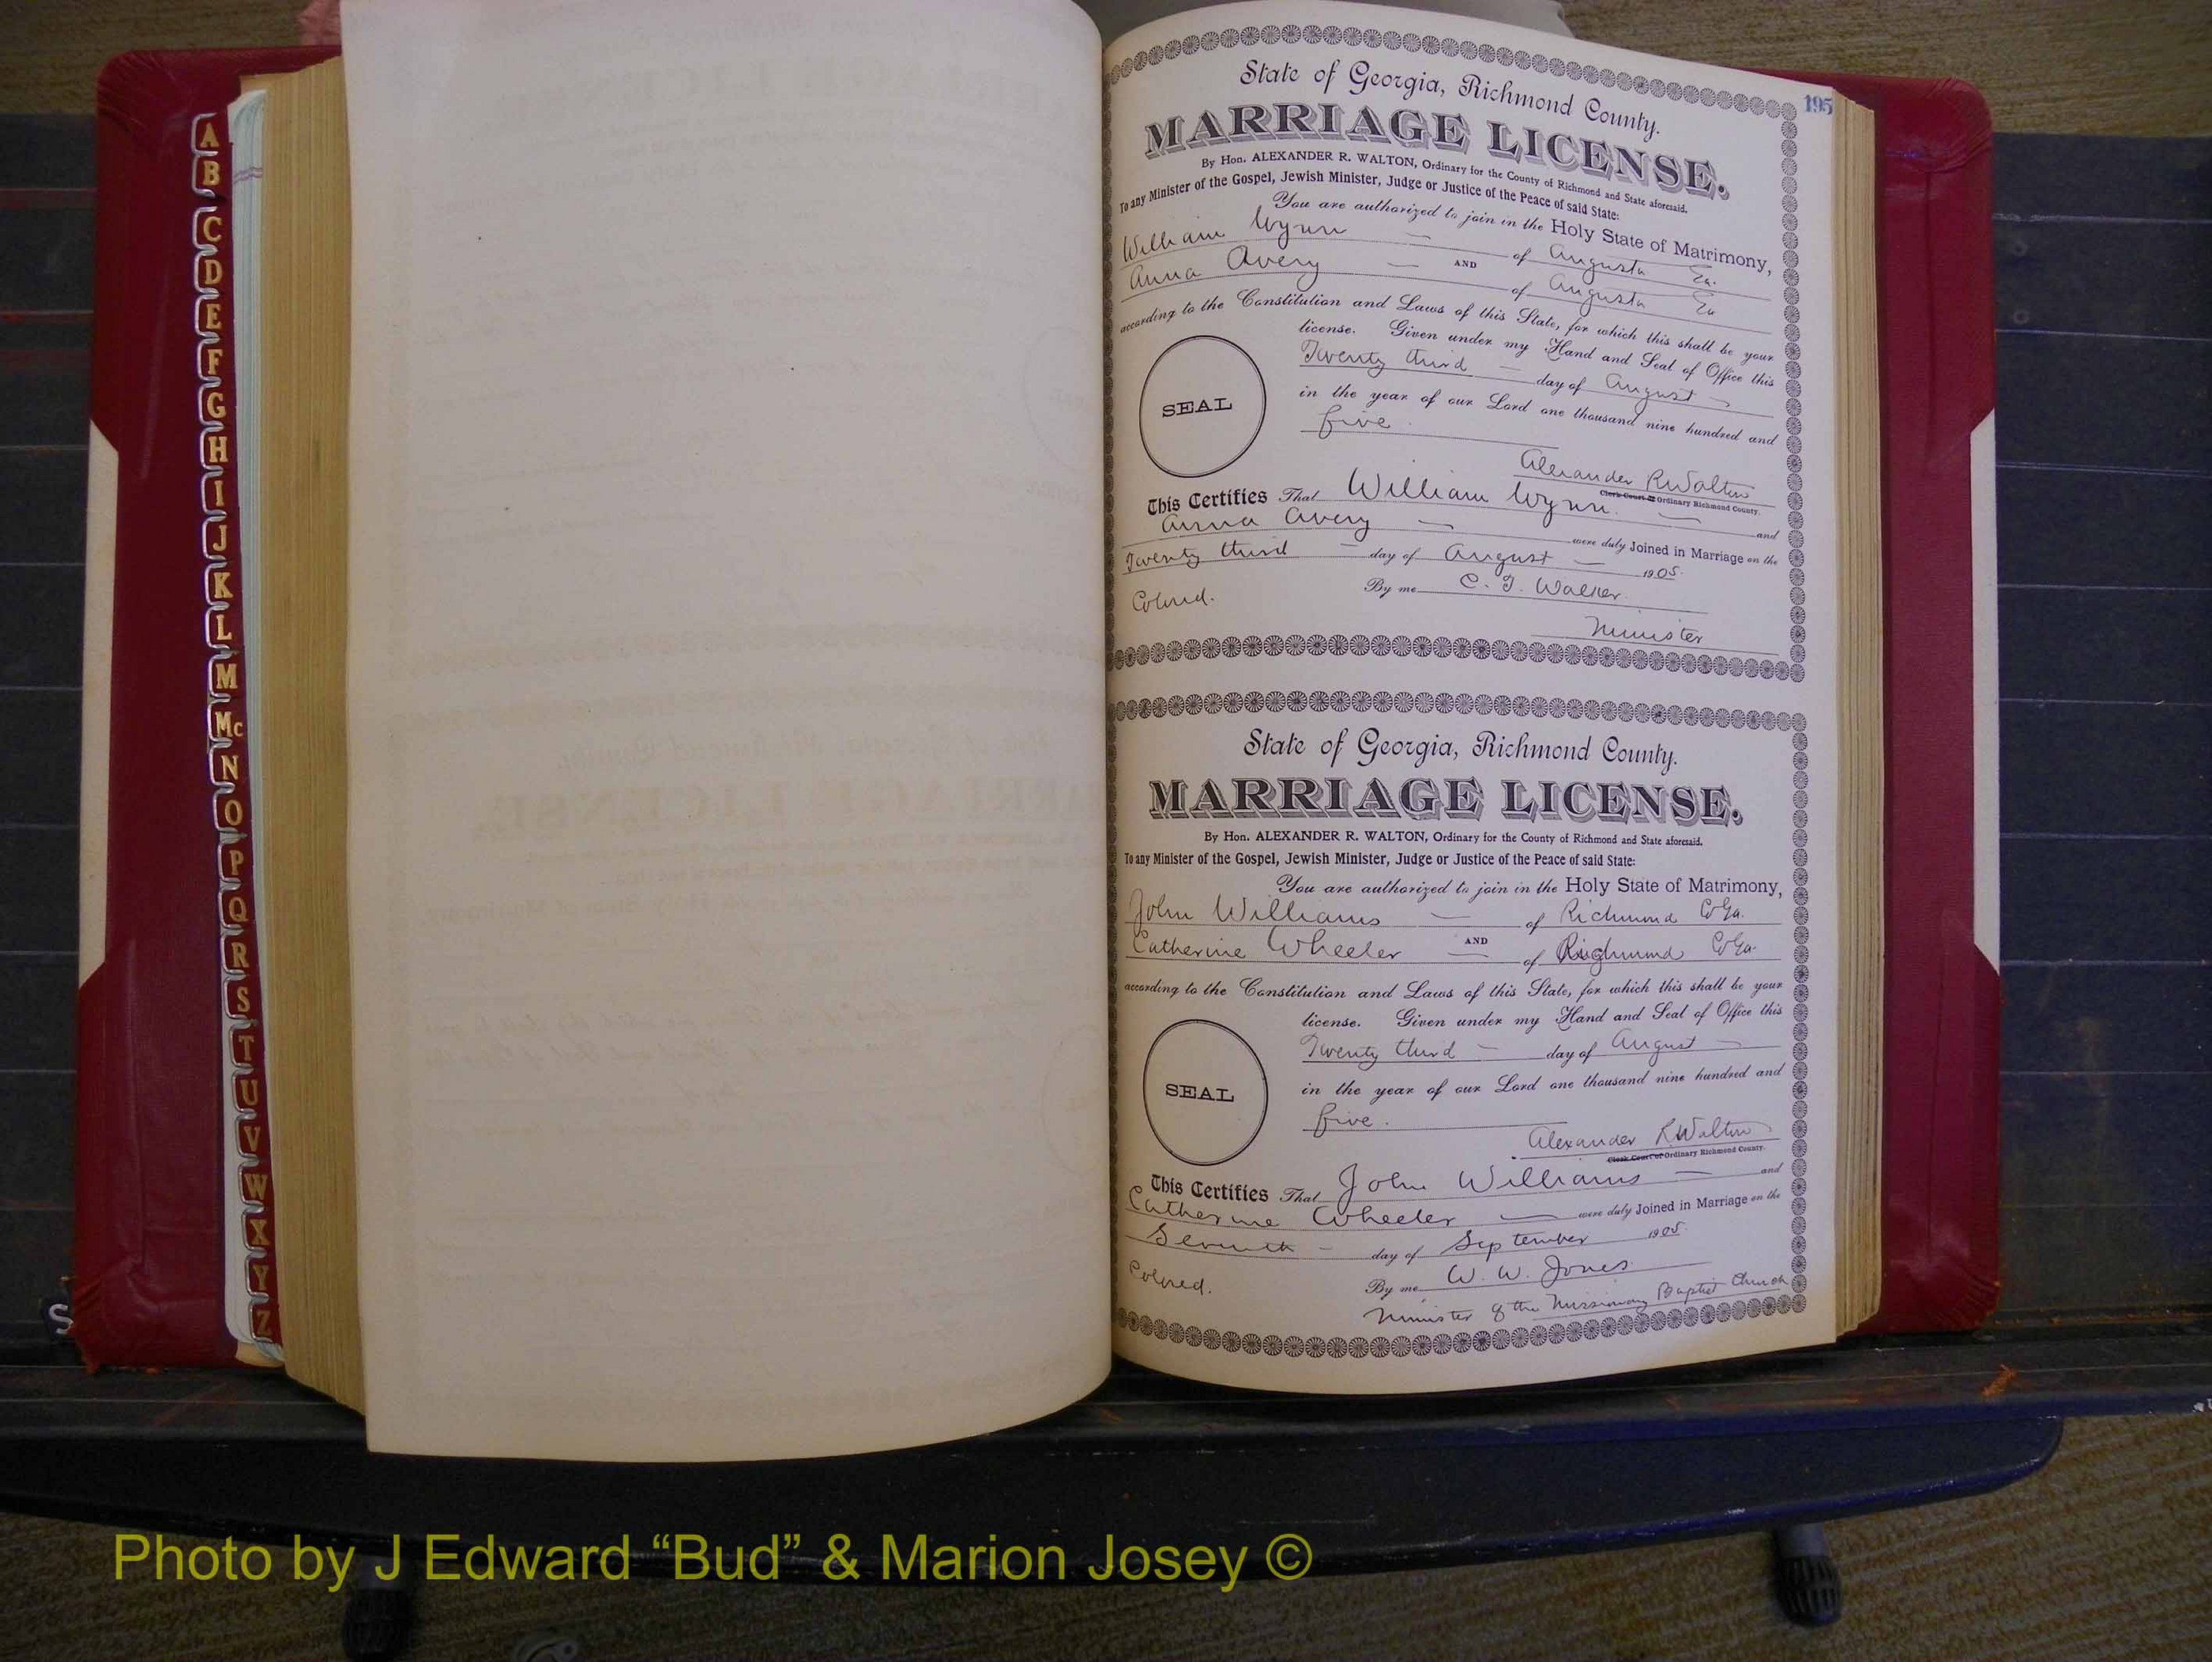 A
B
C
D
E
F
G
H
I
J
K
L
M
Mc
N
O
P
Q
R
S
T
U
V
W
X
Y
Z
S
195
State of Georgia, Richmond County.
MARRIAGE LICENSE.
By Hon. ALEXANDER R. WALTON, Ordinary for the County of Richmond and State aforesaid.
To any Minister of the Gospel, Jewish Minister, Judge or Justice of the Peace of said State:
You are authorized to join in the Holy State of Matrimony,
William Wynn — of Augusta Ga.
AND
Anna Avery — of Augusta Ga
according to the Constitution and Laws of this State, for which this shall be your
license. Given under my Hand and Seal of Office this
Twenty third — day of August —
in the year of our Lord one thousand nine hundred and
five.
SEAL
Alexander R Walton
Clerk Court of Ordinary Richmond County.
This Certifies That William Wynn. — and
Anna Avery — were duly Joined in Marriage on the
Twenty third — day of August — 1905.
Colored.
By me C. T. Walker.
Minister
State of Georgia, Richmond County.
MARRIAGE LICENSE.
By Hon. ALEXANDER R. WALTON, Ordinary for the County of Richmond and State aforesaid.
To any Minister of the Gospel, Jewish Minister, Judge or Justice of the Peace of said State:
You are authorized to join in the Holy State of Matrimony,
John Williams — of Richmond Co Ga.
AND
Catherine Wheeler — of Richmond Co Ga.
according to the Constitution and Laws of this State, for which this shall be your
license. Given under my Hand and Seal of Office this
Twenty third — day of August —
in the year of our Lord one thousand nine hundred and
five.
SEAL
Alexander R. Walton
Clerk Court of Ordinary Richmond County.
This Certifies That John Williams — and
Catherine Wheeler — were duly Joined in Marriage on the
Seventh — day of September 1905.
Colored.
By me W. W. Jones
Minister of the Missionary Baptist Church
Photo by J Edward “Bud” & Marion Josey ©